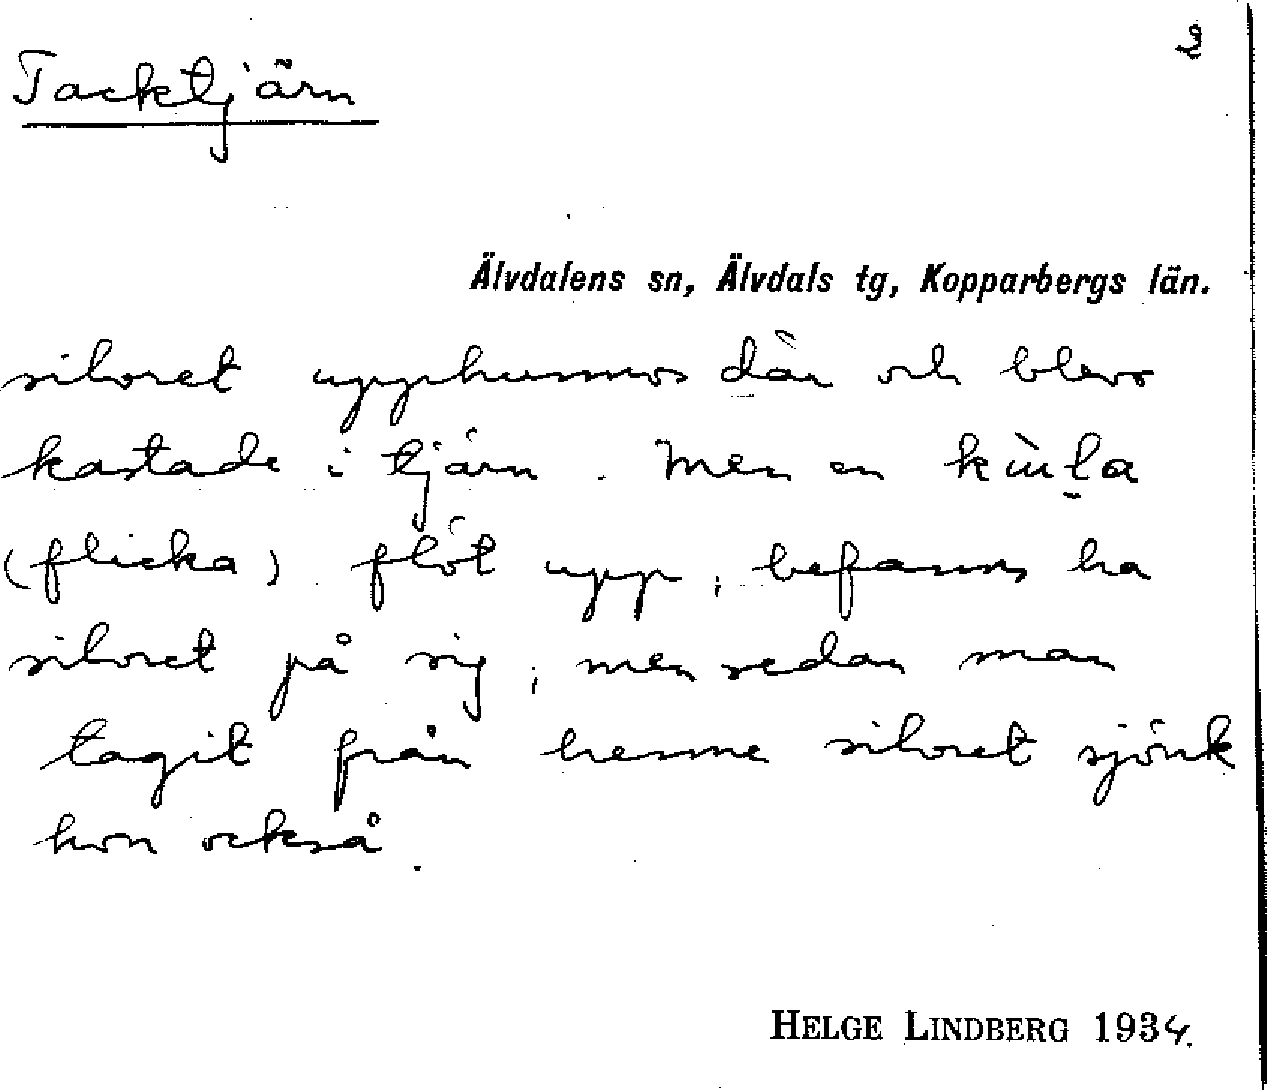 2
Tacktjärn
Älvdalens sn, Älvdals tg, Kopparbergs län.
silvret upphunnos där och blevo
kastade i tjärn. Men en kùla
(flicka) flöt upp, befanns ha
silvret på sig, men sedan man
tagit från henne silvret sjönk
hon också.
HELGE LINDBERG 1934.